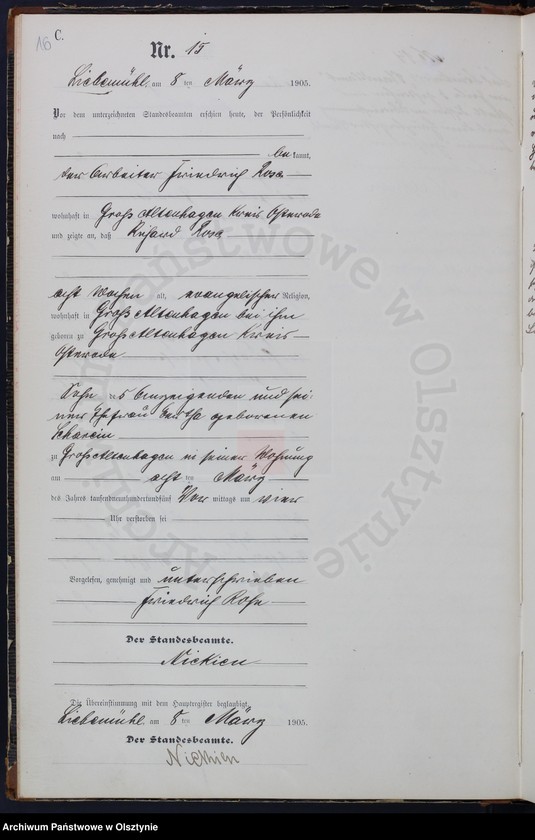 16
C.
Nr. 15
Liebemühl, am 8 ten März 1905.
Vor dem unterzeichneten Standesbeamten erschien heute, der Persönlichkeit
nach
be kannt,
der Arbeiter Friedrich Rose
wohnhaft in Groß Altenhagen Kreis Osterode
und zeigte an, daß Richard Rose
acht Wochen alt, evangelischer Religion,
wohnhaft in Groß Altenhagen bei ihm
geboren zu Groß Altenhagen Kreis
Osterode
Sohn des Anzeigenden und sei
ner Ehefrau Bertha geborenen
zu Groß Altenhagen in seiner Wohnung
am acht ten März
des Jahres tausendneunhundertundfünf Vor mittags um vier
Uhr verstorben sei
Vorgelesen, genehmigt und unterschrieben
Friedrich Rose
Der Standesbeamte.
Nickien
Die Übereinstimmung mit dem Hauptregister beglaubigt.
Liebemühl, am 8 ten März 1905.
Der Standesbeamte.
Nickien
Archiwum Państwowe w Olsztynie
Archiwum Państwowe w Olsztynie